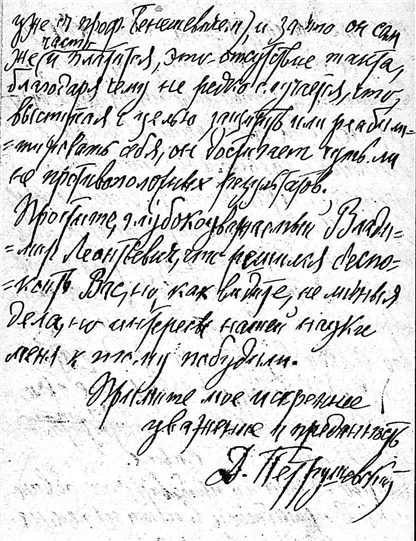 уже с проф. Бенешевичем), и за что он сам
часто
же и платится, это отсутствие такта,
благодаря чему не редко случается, что,
выступая с целью защитить или реабили-
=тировать себя, он достигает чуть ли
не противоположных результатов.
Простите, глубокоуважаемый Влади-
=мир Леонтьевич, что решился беспо-
=коить Вас, но, как видите, не личныя
дела, но интересы нашей науки
меня к тому побудили.
Примите мое искреннее
уважение и преданность
Д. Петрушевский